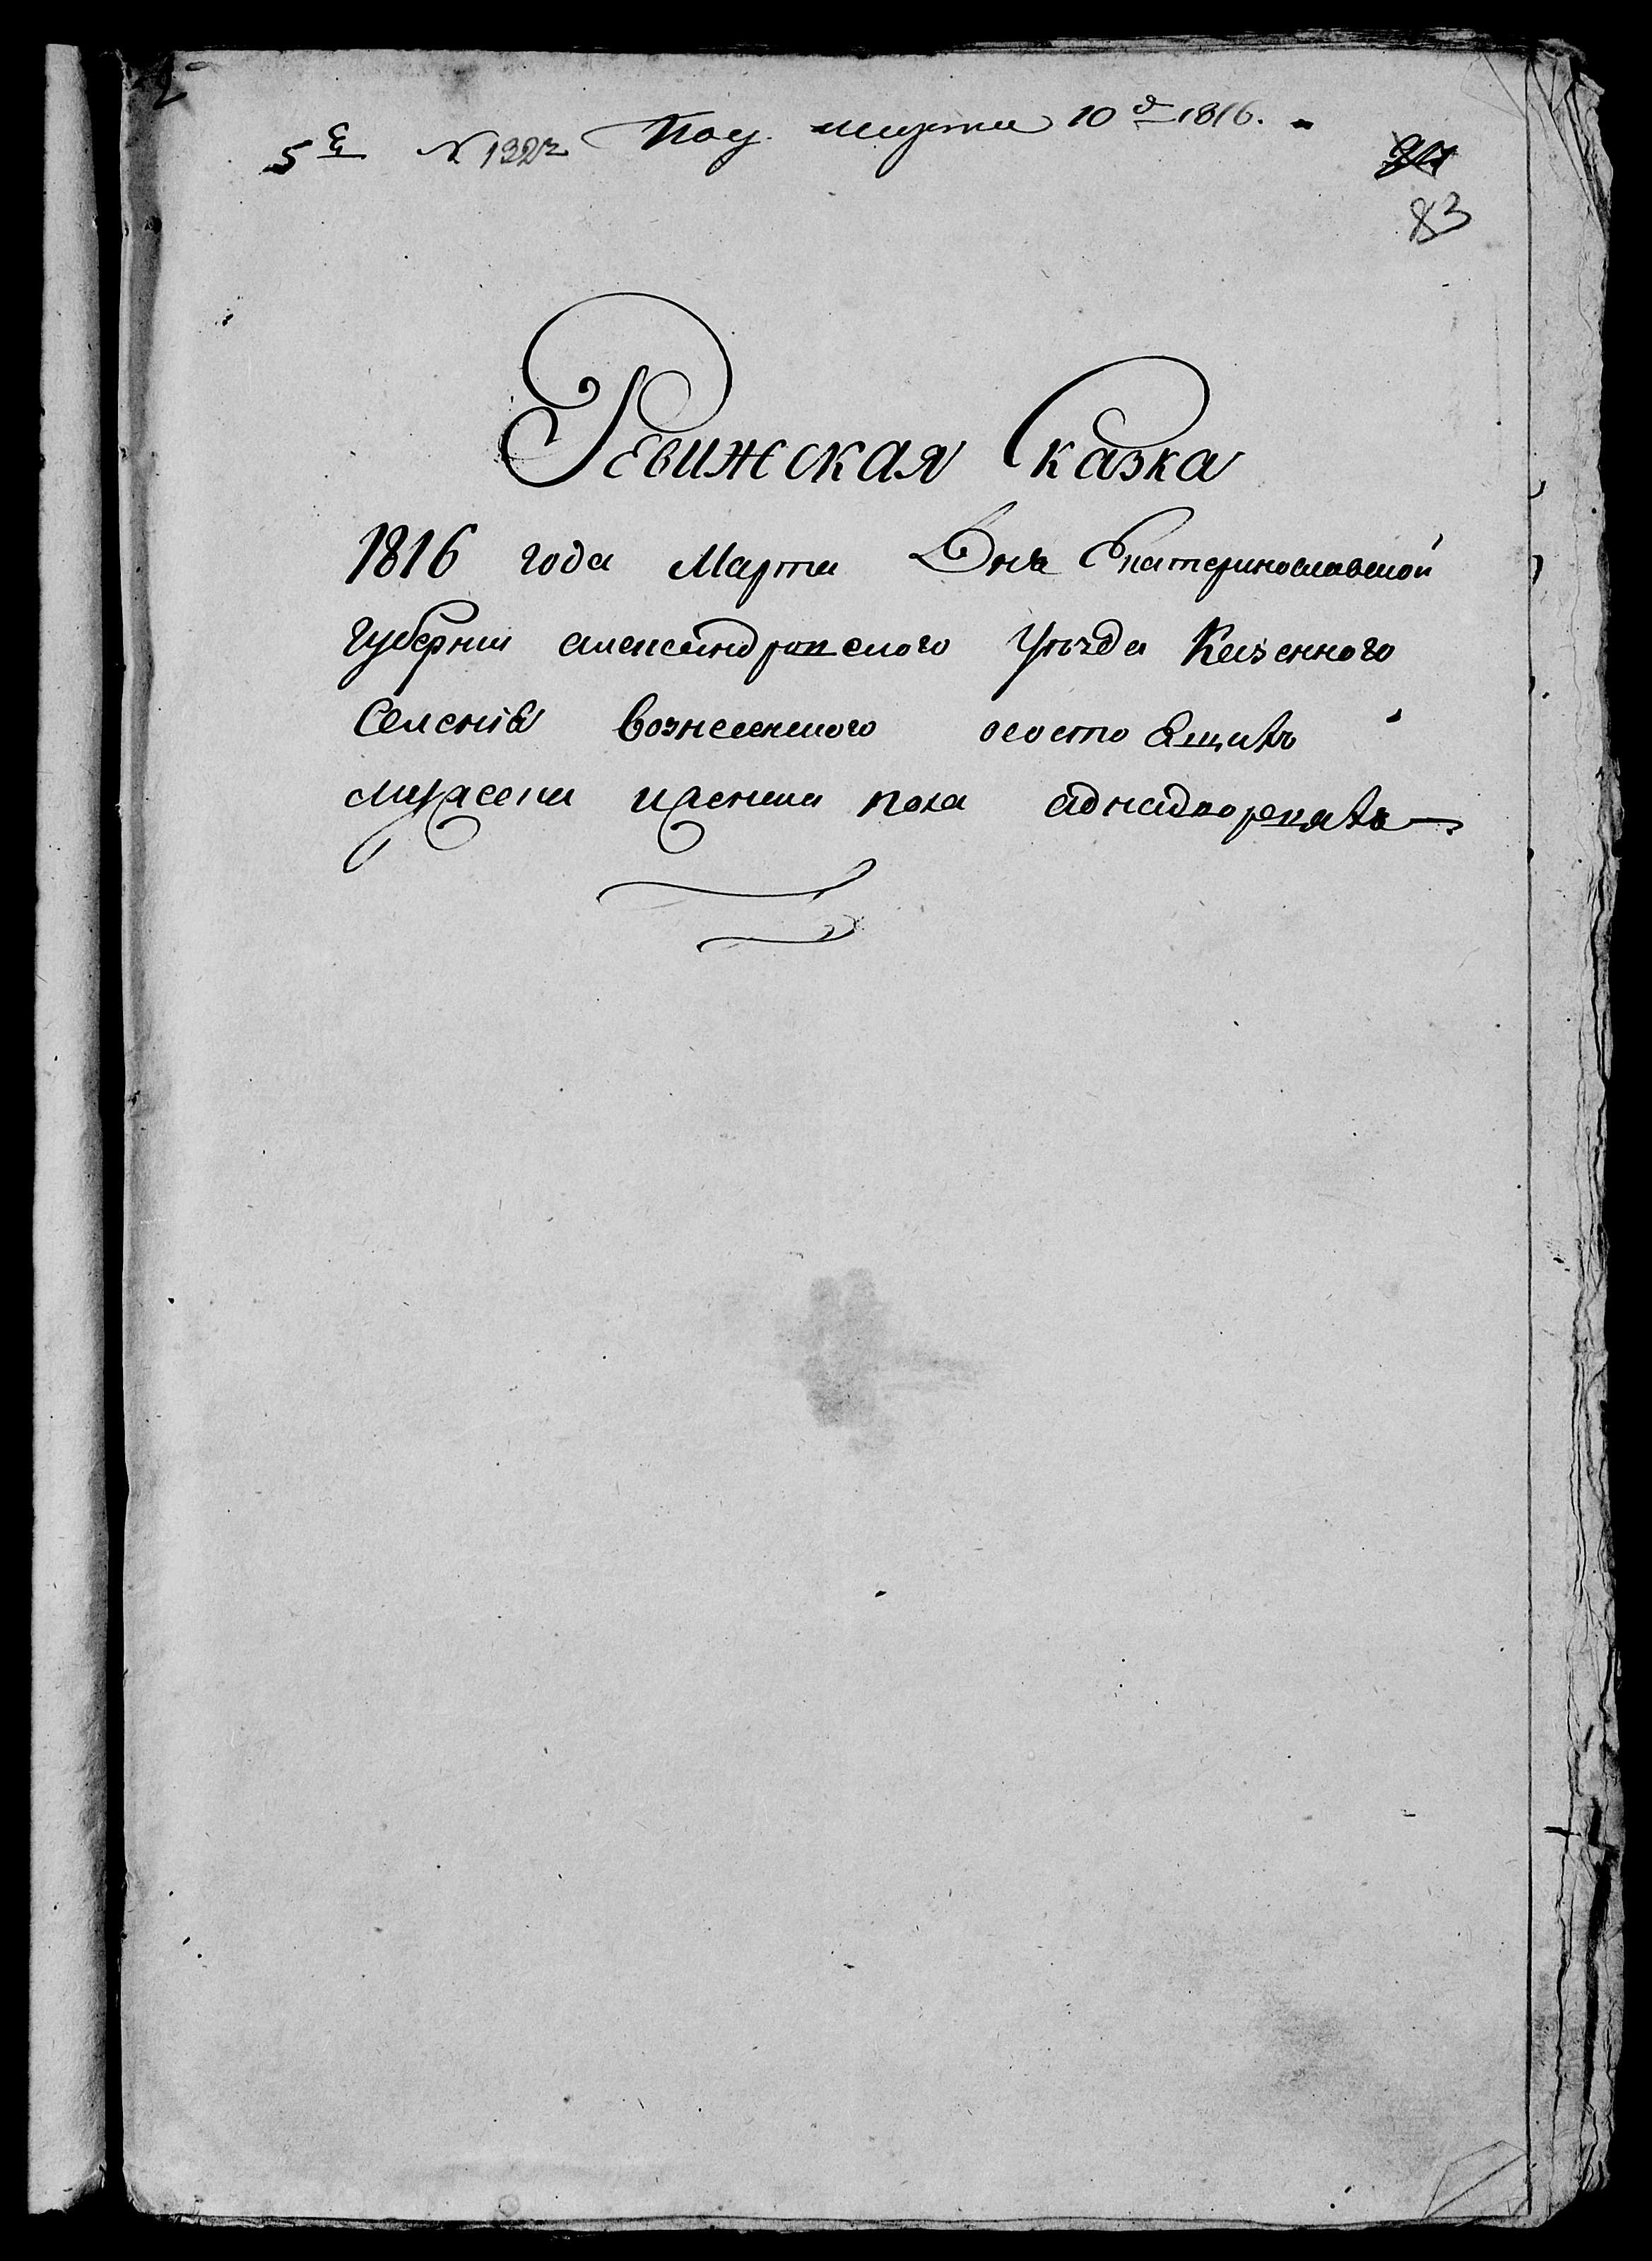 5е № 1322 Пол. марта 10д 1816.
83
Ревижская Сказка
1816 года Марта Дня Екатеринославской
губернии александровского уѣзда Казенного
Селения вознесенского осостоящихъ
мужеска иженска пола аднадворцахъ